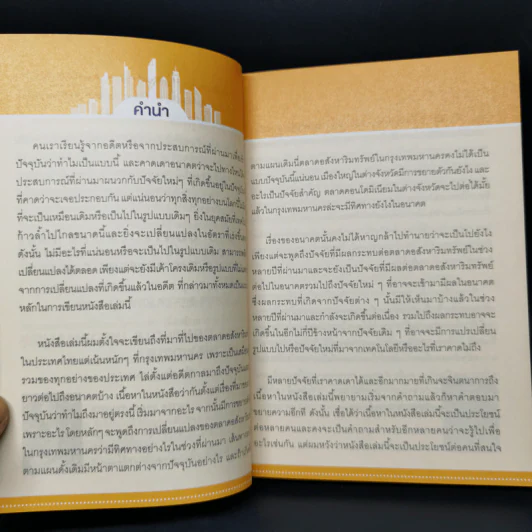 คำนำ
คนเราเรียนรู้จากอดีตหรือจากประสบการณ์ที่ผ่านมา
ปัจจุบันว่าทำไมเป็นแบบนี้ และคาดเดาอนาคตว่าจะไปทาง
ประสบการณ์ที่ผ่านมาผนวกกับปัจจัยใหม่ๆ ที่เกิดขึ้นอยู่ในปัจจุบัน
ที่คาดว่าจะเจอประกอบกัน แต่แน่นอนว่าทุกสิ่งทุกอย่างบนโลกนี้
ที่จะเป็นเหมือนเดิมหรือเป็นไปในรูปแบบเดิมๆ ยิ่งในยุคสมัยที่
ก้าวล้ำไปไกลขนาดนี้และยิ่งจะเปลี่ยนแปลงในอัตราที่เร่งขึ้น
ดังนั้น ไม่มีอะไรที่แน่นอนหรือจะเป็นไปในรูปแบบเดิม สามารถ
เปลี่ยนแปลงได้ตลอดเวลา เพียงแต่จะยังมีเค้าโครงเดิมหรือรูปแบบที่
จากการเปลี่ยนแปลงที่เกิดขึ้นแล้วในอดีต ที่กล่าวมาทั้งหมดเป็น
หลักในการเขียนหนังสือเล่มนี้
หนังสือเล่มนี้ผมตั้งใจจะเขียนถึงที่มาที่ไปของตลาดอสังหา
ในประเทศไทยแต่เน้นหนักๆ ที่กรุงเทพมหานคร เพราะเป็น
รวมของทุกอย่างของประเทศ ไล่ตั้งแต่อดีตกาลมาถึงปัจจุบัน
ยาวต่อไปถึงอนาคตบ้าง เนื้อหาในหนังสือว่ากันตั้งแต่เรื่องที่มา
ปัจจุบันว่าทำไมถึงมาอยู่ตรงนี้ เริ่มมาจากอะไร จากนั้นมีการ
เพราะอะไร โดยหลักๆ จะพูดถึงการเปลี่ยนแปลงของตลาดอสังหา
ในกรุงเทพมหานครว่ามีทิศทางอย่างไรในช่วงที่ผ่านมา
ตามแผนดั้งเดิมมีหน้าตาแตกต่างจากปัจจุบันอย่างไร และถ้า
ตามแผนเดิมนี่ตลาดอสังหาริมทรัพย์ในกรุงเทพมหานครคงไม่ได้เป็น
แบบปัจจุบันนี้แน่นอน เมืองใหญ่ในต่างจังหวัดมีการขยายตัวกันยังไง และ
อะไรเป็นปัจจัยสำคัญ ตลาดคอนโดมิเนียมในต่างจังหวัดจะไปต่อได้มั้ย
แล้วในกรุงเทพมหานครล่ะจะมีทิศทางยังไงในอนาคต
เรื่องของอนาคตนั้นคงไม่ได้หาญกล้าไปทำนายว่าจะเป็นไปยังไง
เพียงแต่จะพูดถึงปัจจัยที่มีผลกระทบต่อตลาดอสังหาริมทรัพย์ในช่วง
หลายปีที่ผ่านมาและจะยังเป็นปัจจัยที่มีผลต่อตลาดอสังหาริมทรัพย์
ต่อไปในอนาคตรวมไปถึงปัจจัยใหม่ ๆ ที่อาจจะเข้ามามีผลในอนาคต
ซึ่งผลกระทบที่เกิดจากปัจจัยต่าง ๆ นั้นมีให้เห็นมาบ้างแล้วในช่วง
หลายปีที่ผ่านมาและกำลังจะเกิดขึ้นต่อเนื่อง รวมไปถึงผลกระทบอาจจะ
เกิดขึ้นในอีกไม่กี่ปีข้างหน้าจากปัจจัยเดิม ๆ ที่อาจจะมีการแปรเปลี่ยน
รูปแบบไปหรือปัจจัยใหม่ที่มาจากเทคโนโลยีหรืออะไรที่เราคาดไม่ถึง
มีหลายปัจจัยที่เราคาดเดาได้และอีกมากมายที่เกินจะจินตนาการถึง
เนื้อหาในหนังสือเล่มนี้พยายามเริ่มจากคำถามแล้วก็หาคำตอบมา
ขยายความอีกที ดังนั้น เชื่อได้ว่าเนื้อหาในหนังสือเล่มนี้จะเป็นประโยชน์
ต่อหลายคนและคงจะเป็นคำถามสำหรับอีกหลายคนว่าจะรู้ไปเพื่อ
อะไรเช่นกัน แต่ผมหวังว่าหนังสือเล่มนี้จะเป็นประโยชน์ต่อคนที่สนใจ